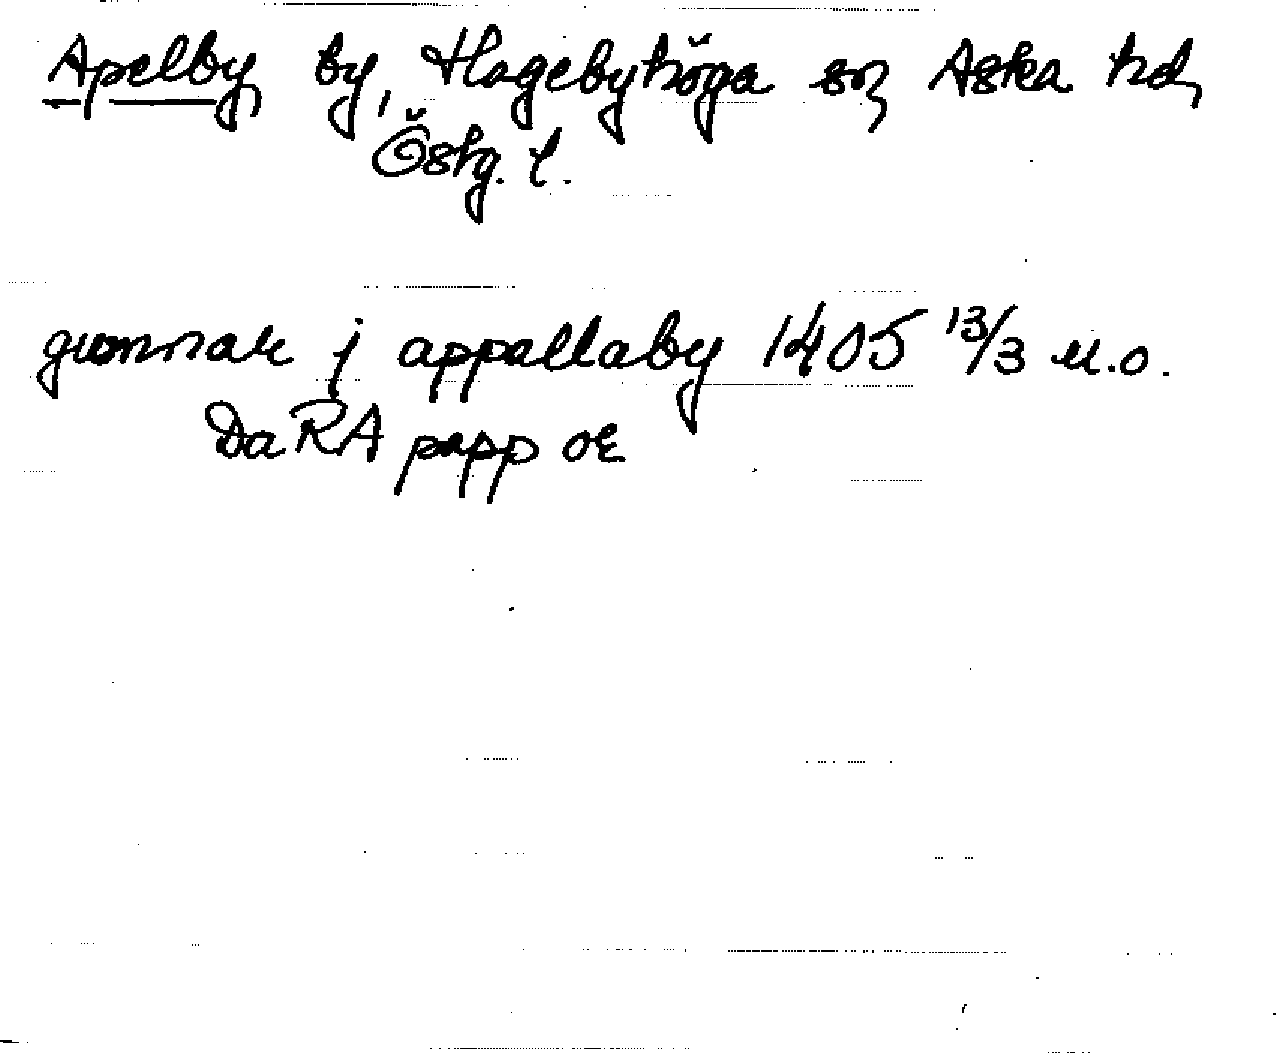 Apelby by, Hagebyhöga sn, Aska hd,
Östg. l.
gunnar j appallaby 1405 13/3 u.o.
DaRA papp or